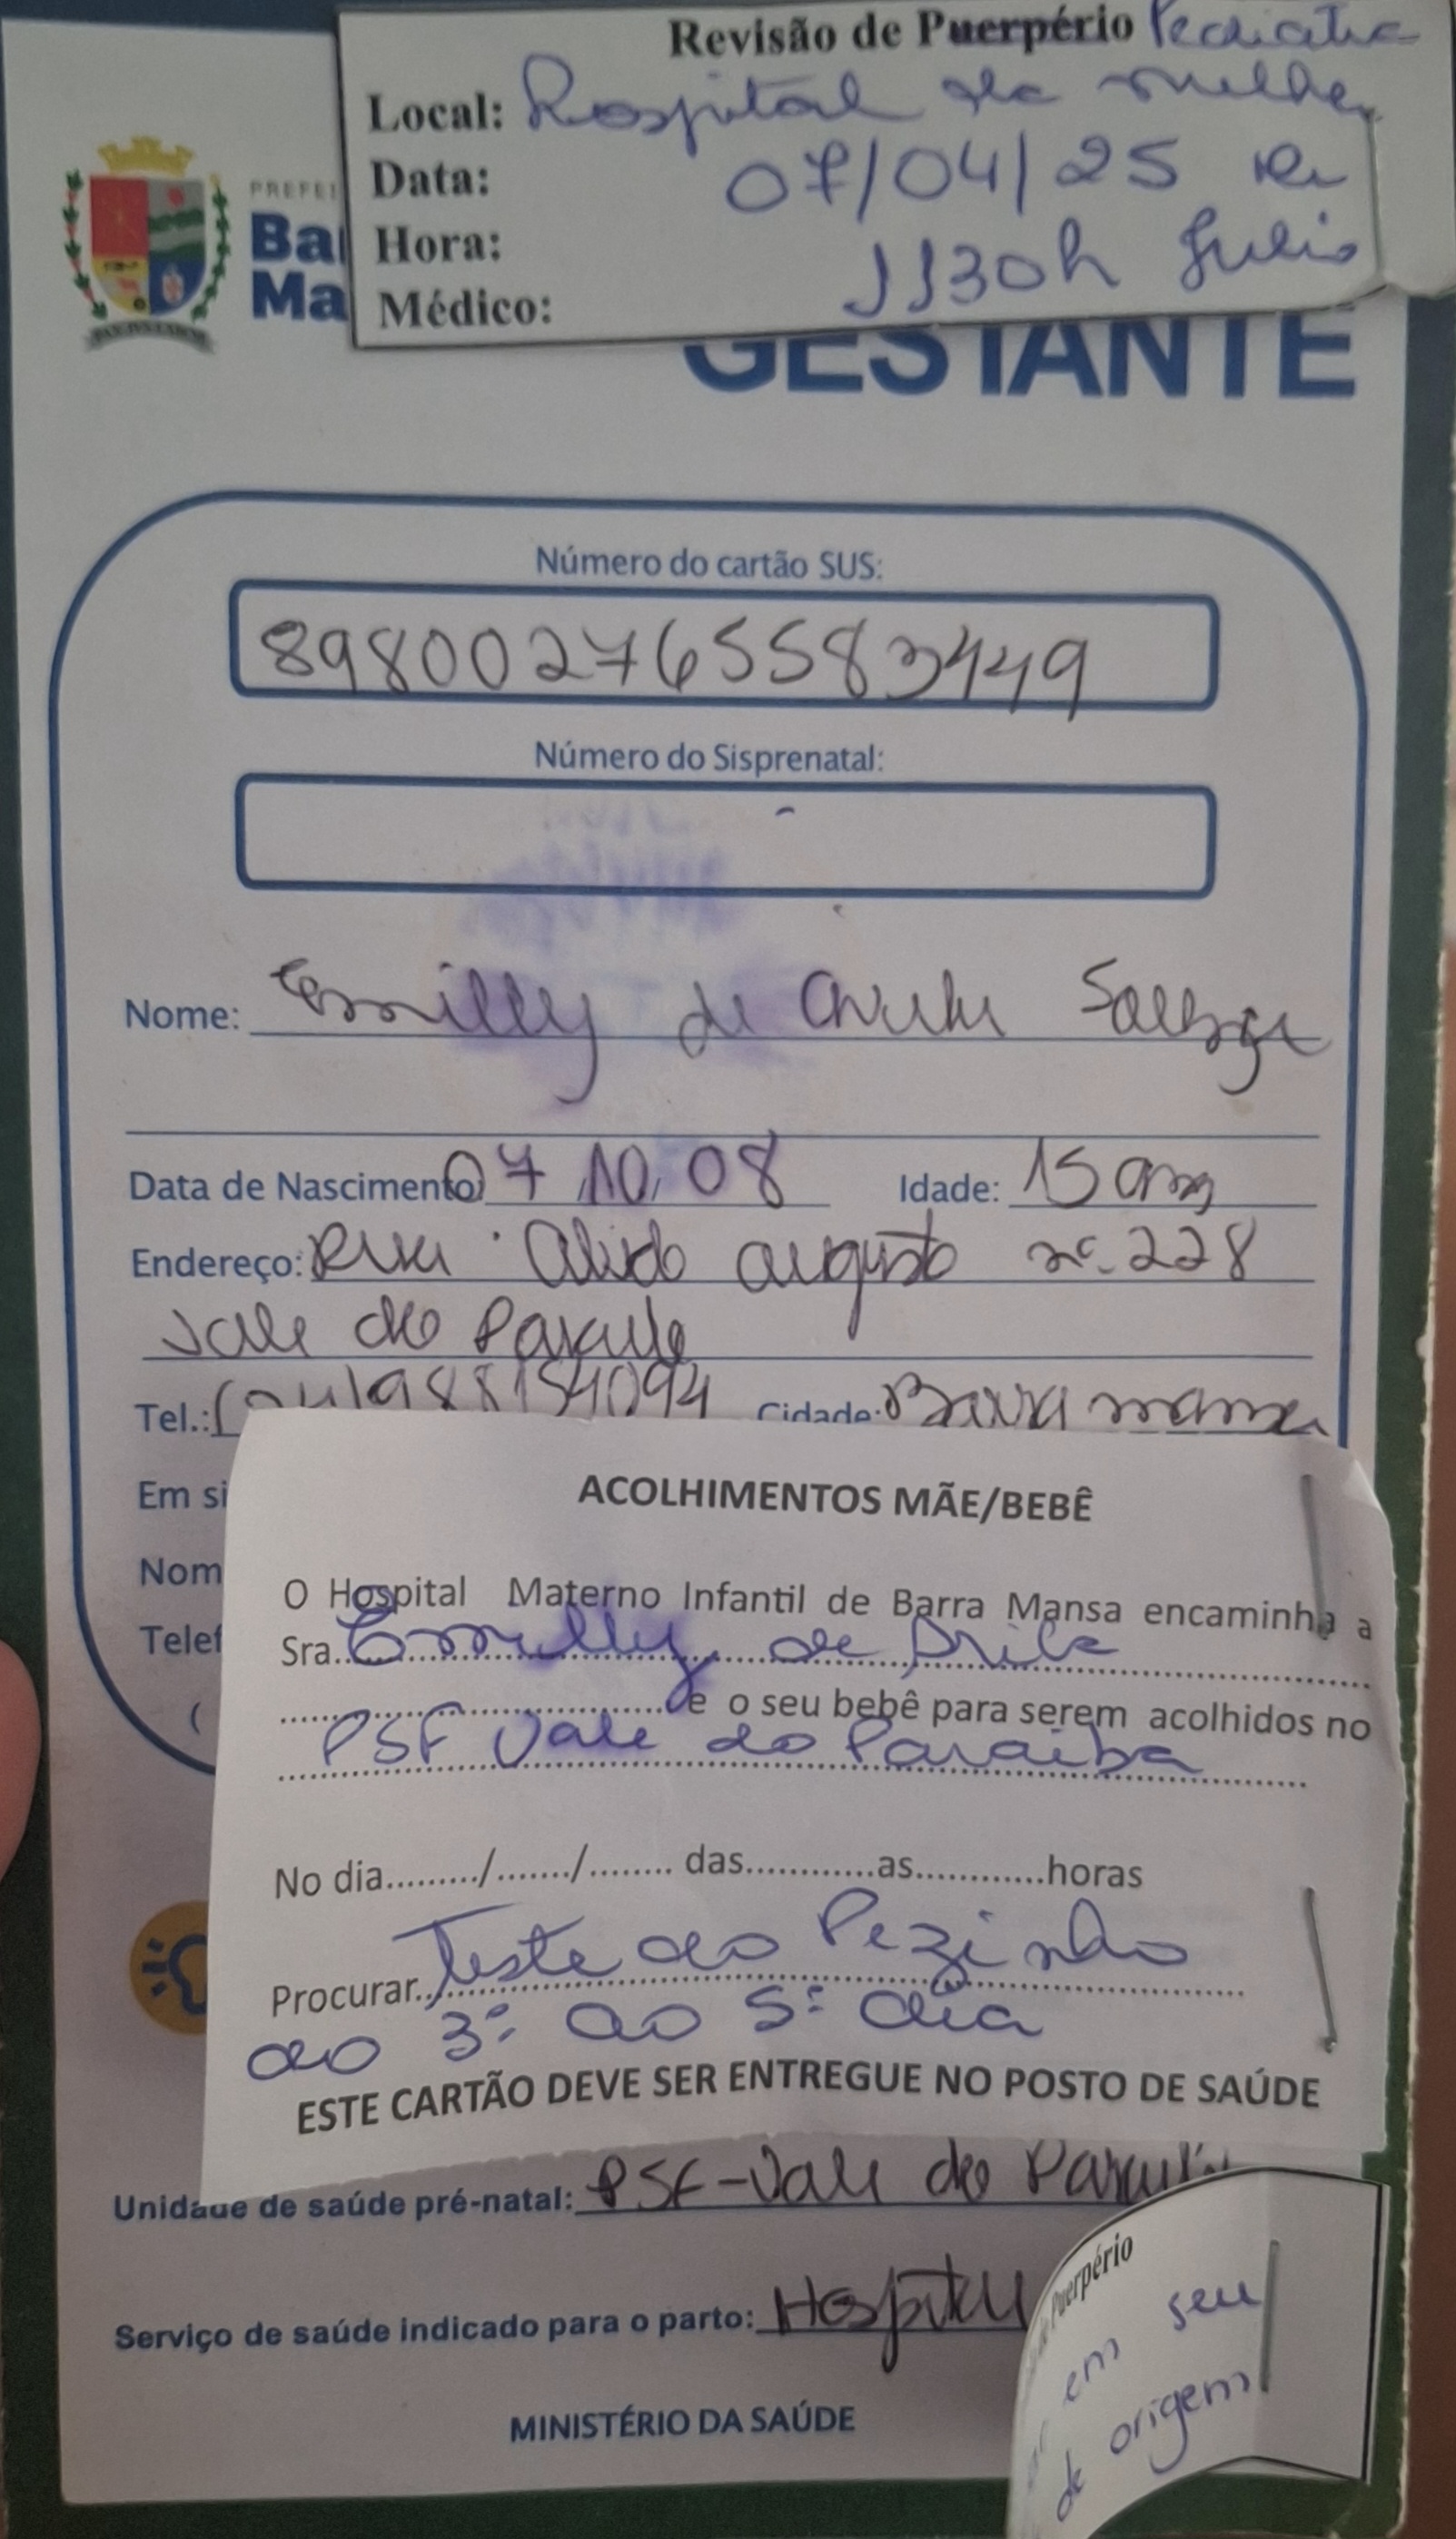 Revisão de Puerpério Pediatra
Local: Hospital da mulher
Data: 07/04/25
Hora: 1130h Julio
Médico:
PREFEI
Ba
Ma
GESTANTE
Número do cartão SUS:
898002765583449
Número do Sisprenatal:
Nome: Emilly de
Data de Nascimento 07/10/08 Idade: 15 anos
Endereço: Rua augusto nº 228
Vale do Paraíba
Tel.: Cidade: Barra mansa
Em si
Nom
Telef
(
ACOLHIMENTOS MÃE/BEBÊ
O Hospital Materno Infantil de Barra Mansa encaminha a
Sra. Emilly de
e o seu bebê para serem acolhidos no
PSF Vale do Paraiba
No dia........./......./........ das............as............horas
Procurar. Teste do Pezinho
do 3º ao 5º dia
ESTE CARTÃO DEVE SER ENTREGUE NO POSTO DE SAÚDE
Unidade de saúde pré-natal: PSF-Vale do Paraíba
Serviço de saúde indicado para o parto: Hospital
MINISTÉRIO DA SAÚDE
Puerpério
em seu
de origem